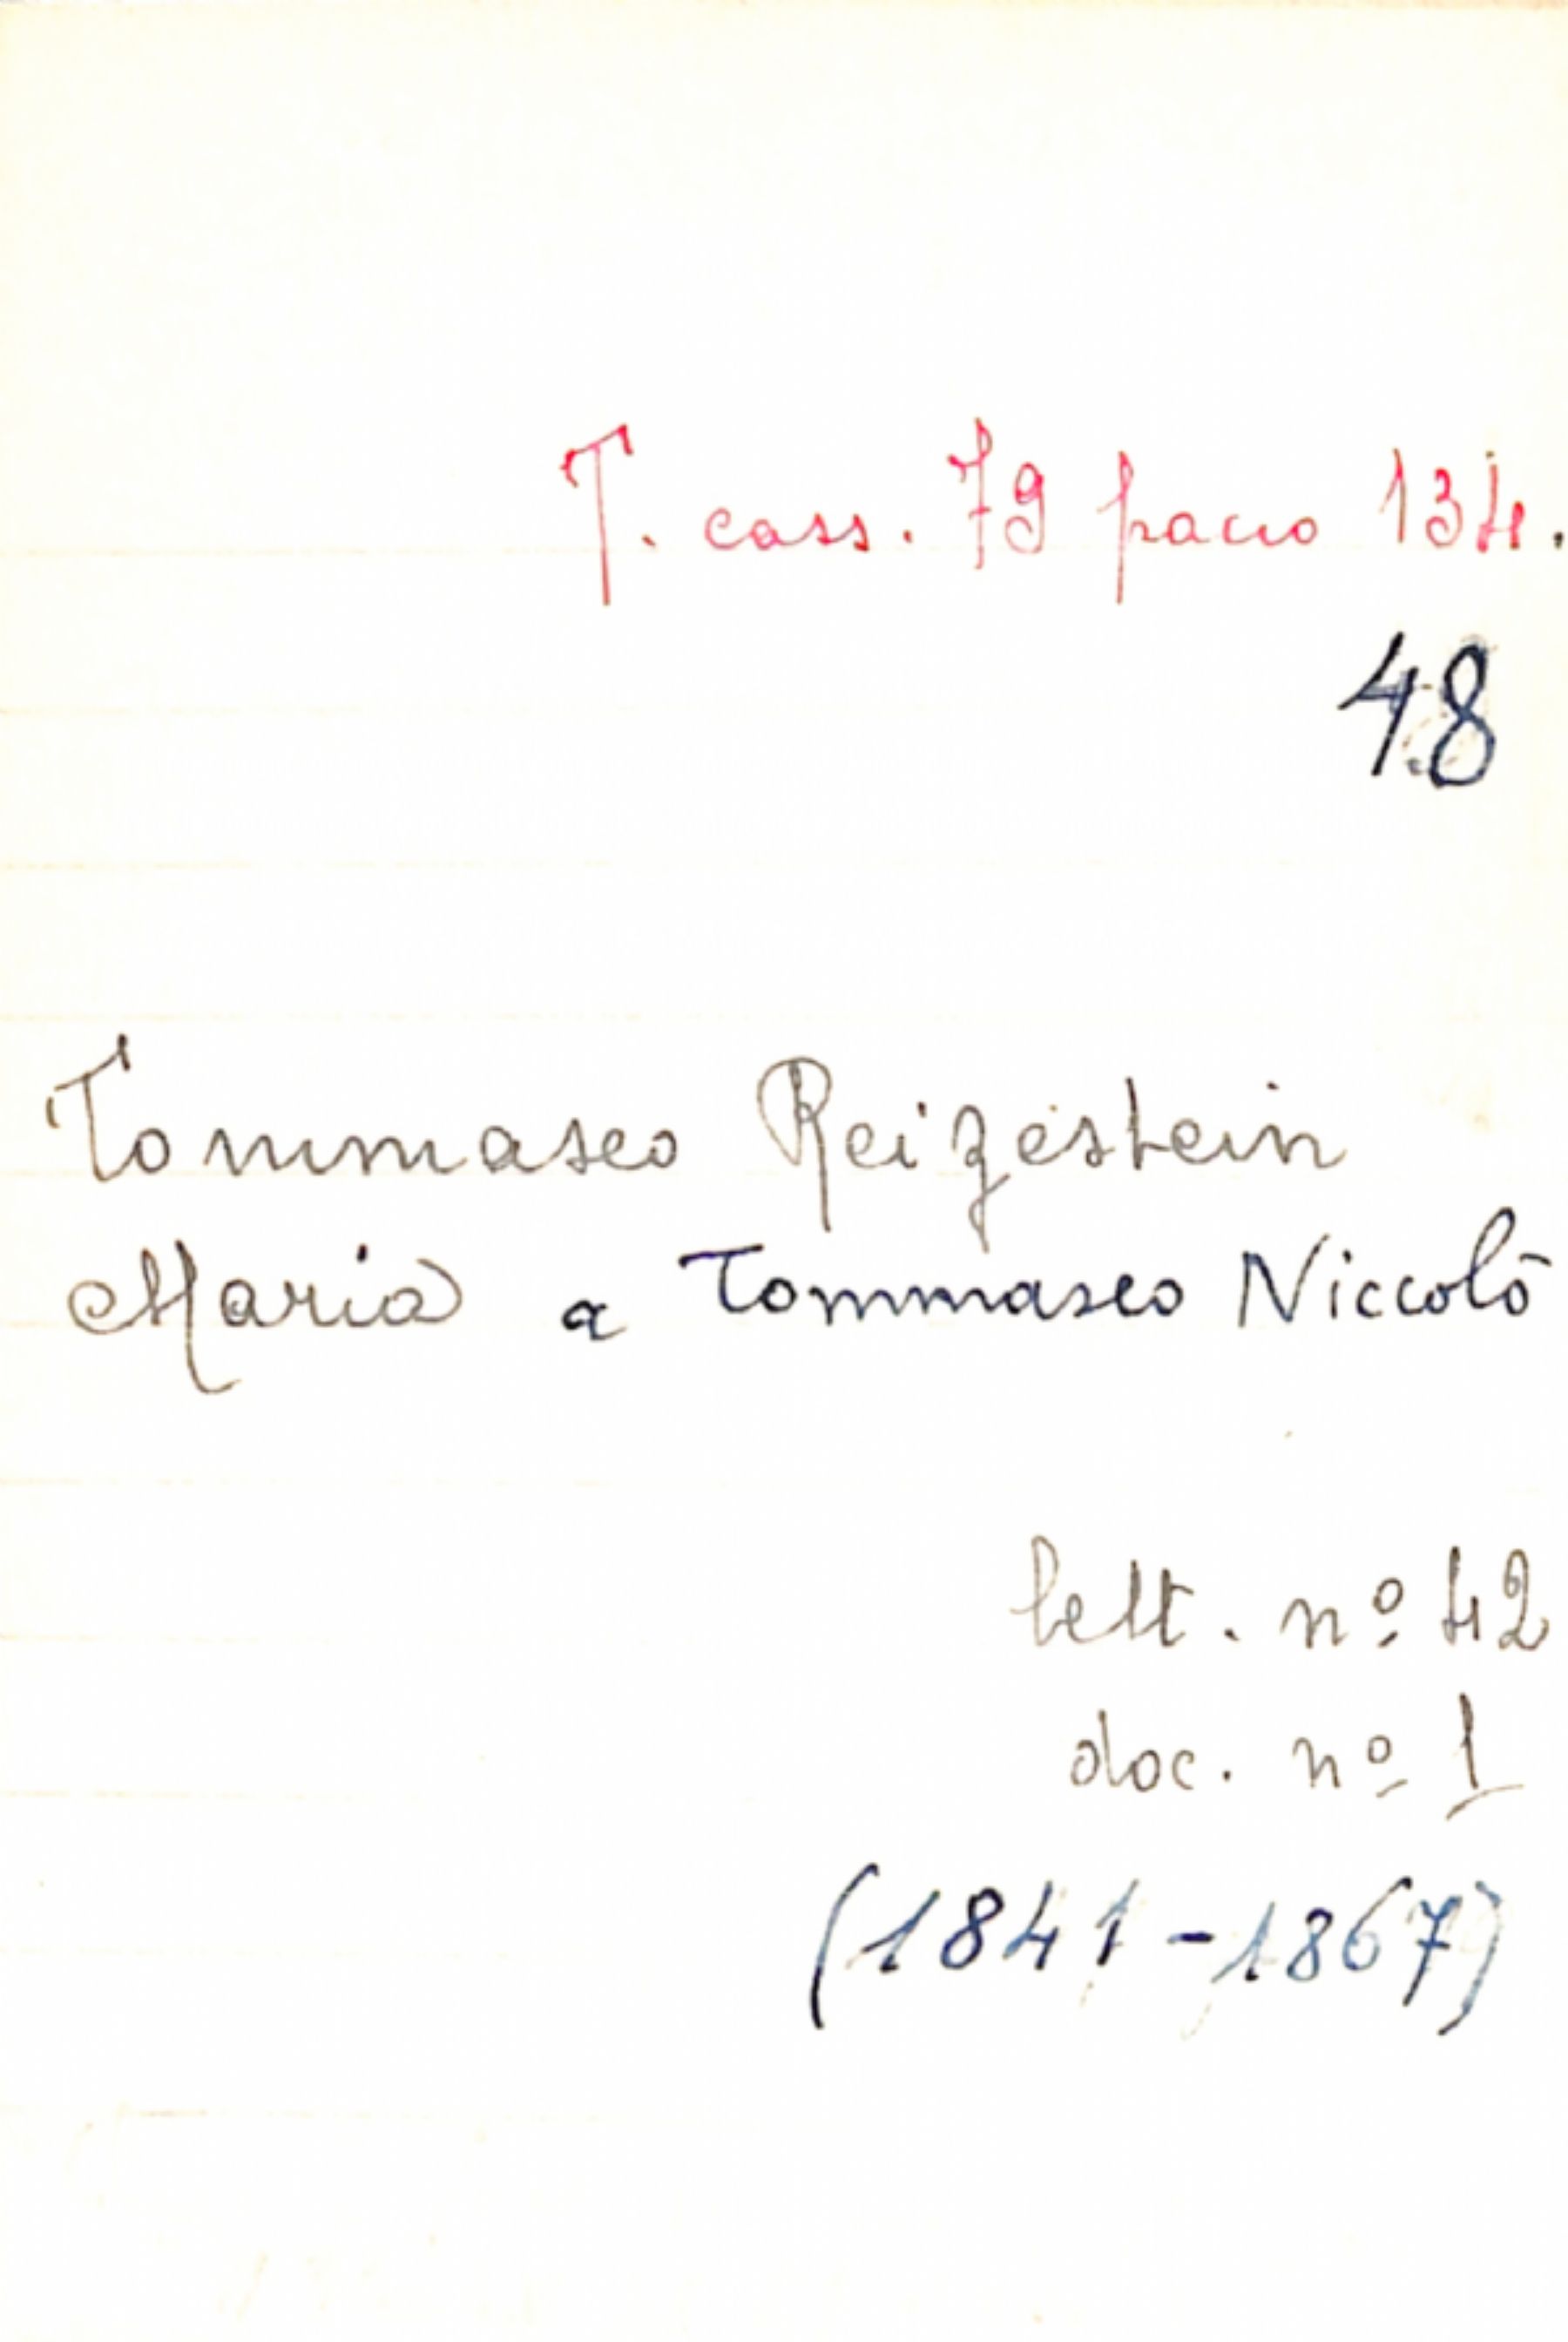 T. cass. 79 pacco 134.
48
Tommaseo Reizestein
Maria a Tommaseo Niccolò
lett. nº 42
doc. nº 1
(1841-1867)